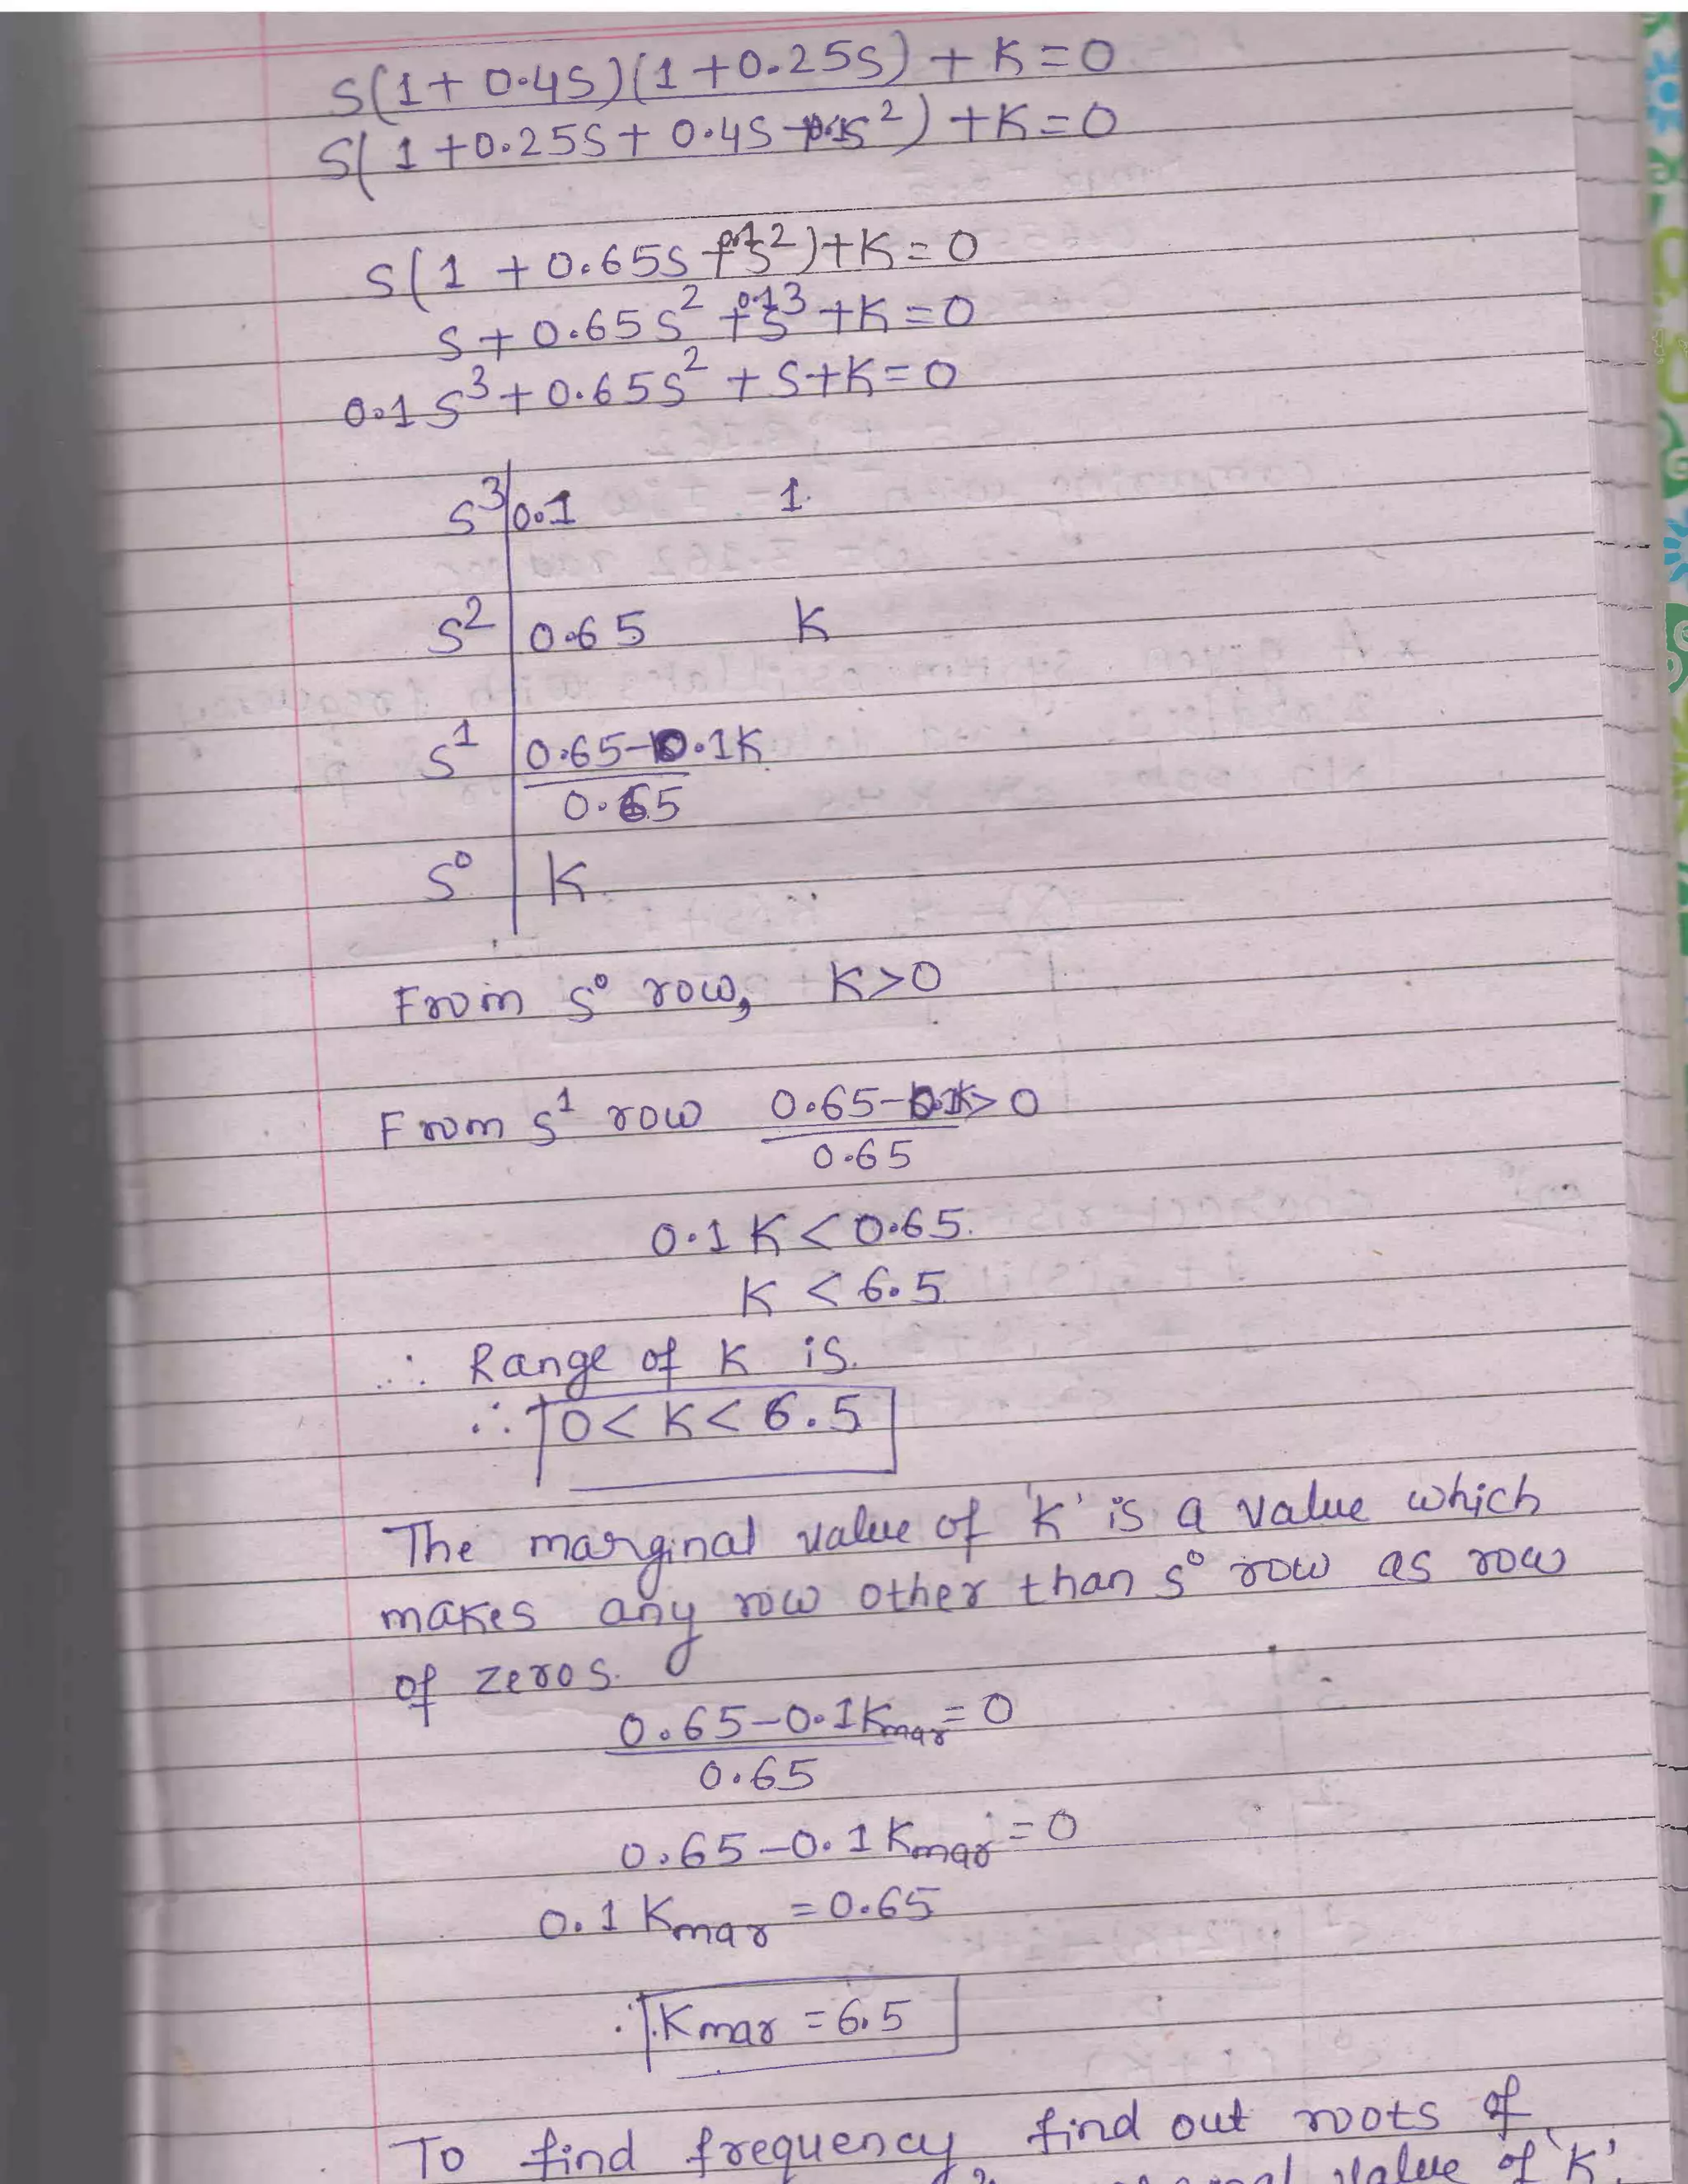 S(1+0.4S)(1+0.25S)+K=0
S(1+0.25S+0.4S+0.1S²)+K=0
S(1+0.65S+0.1S²)+K=0
S+0.65S²+0.1S³+K=0
0.1S³+0.65S²+S+K=0
S³ 0.1 1
S² 0.65 K
S¹ 0.65-0.1K
0.65
S⁰ K
From S⁰ row, K>0
From S¹ row 0.65-0.1K>0
0.65
0.1K<0.65.
K<6.5
∴ Range of K is.
∴ 0<K<6.5
The marginal value of 'K' is a value which
makes any row other than S⁰ row as row
of zeros.
0.65-0.1Kmar=0
0.65
0.65-0.1Kmar=0
0.1Kmar=0.65
∴ Kmar=6.5
To find frequency, find out roots of
value of 'K'.